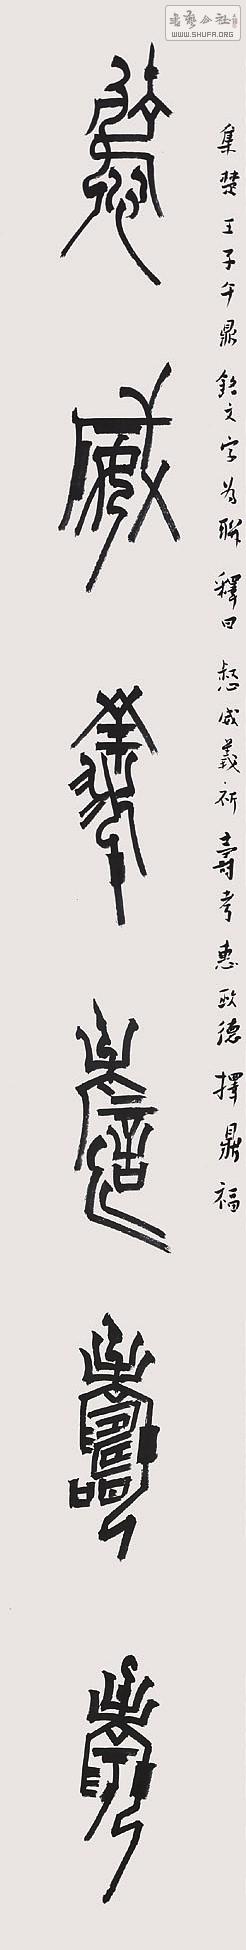 書藝公社
WWW.SHUFA.ORG
集楚王子午鼎銘文字為聯 釋曰 惄威義祈壽考惠政德擇鼎福
惄威義祈壽考